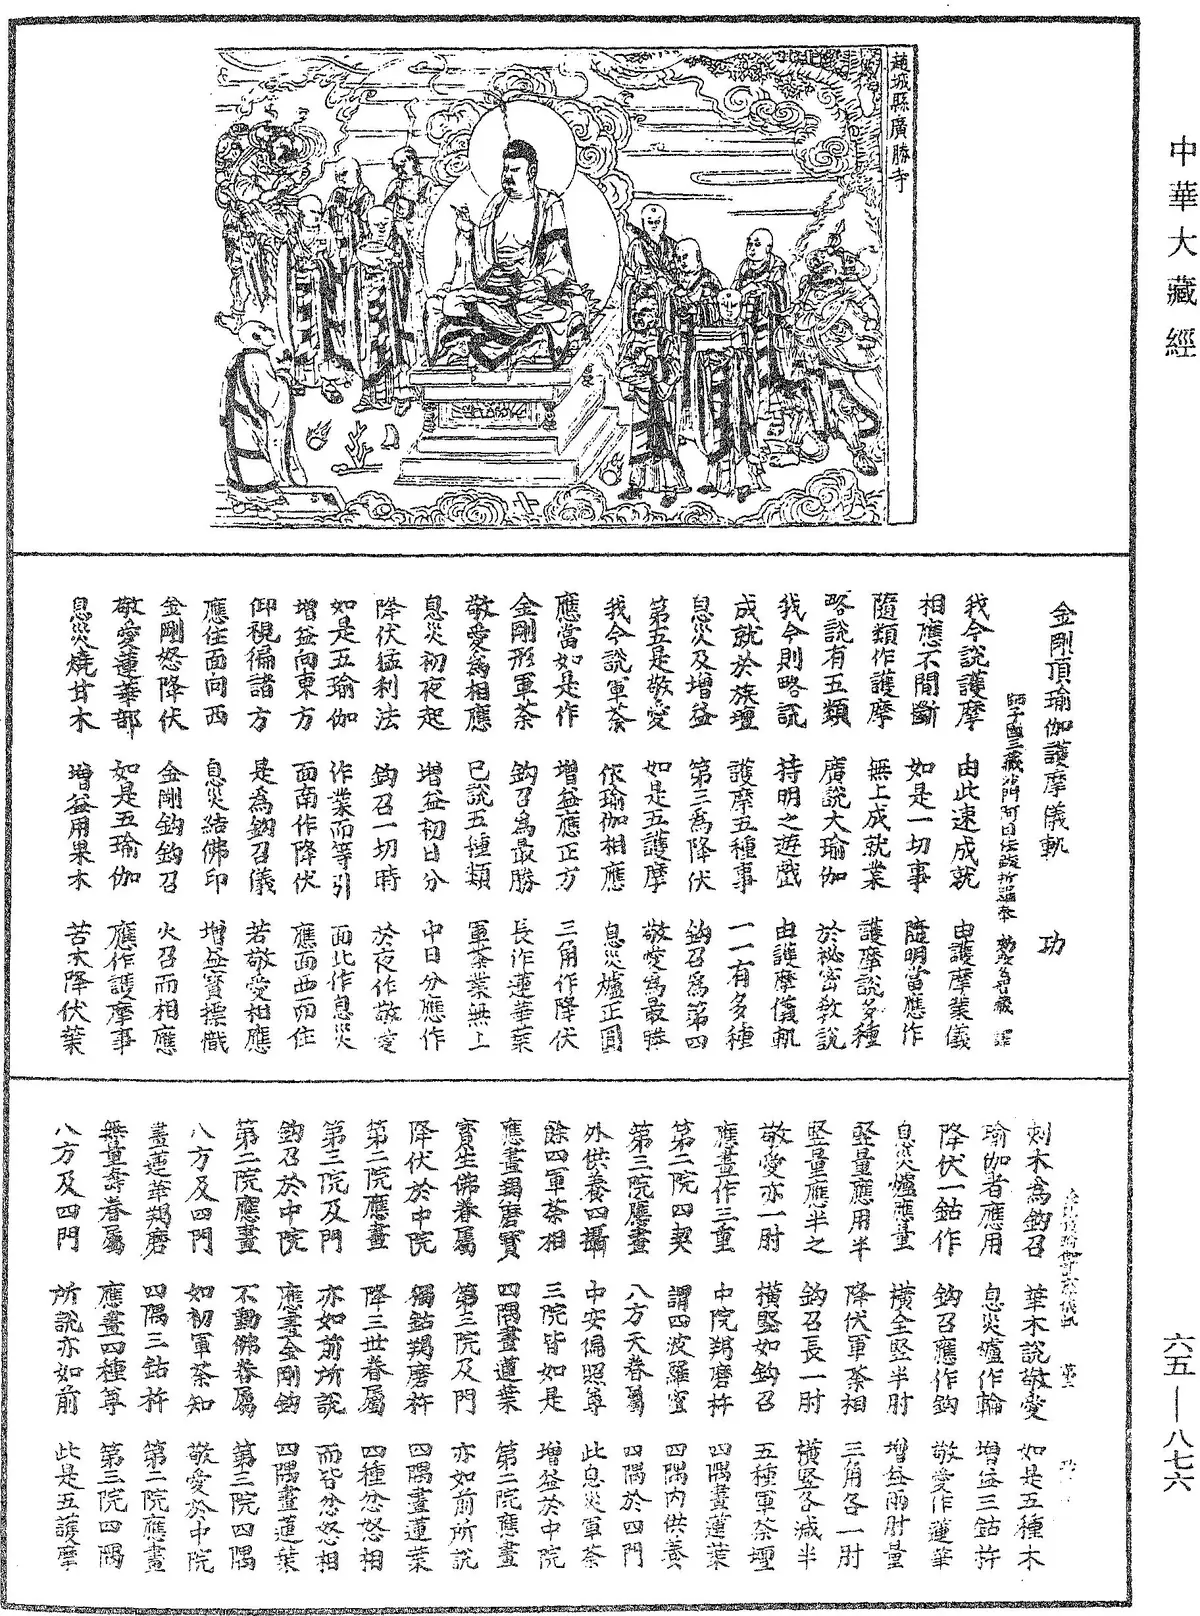 中華大藏經
趙城縣廣勝寺
金剛頂瑜伽護摩儀軌 功
師子國三藏沙門阿目佉跋折羅奉 詔譯
我今說護摩 由此速成就 由護摩業儀
相應不間斷 如是一切事 隨明當應作
隨類作護摩 無上成就業 護摩說多種
略說有五類 廣說大瑜伽 於祕密教說
我今則略說 持明之遊戲 由護摩儀軌
成就於族壇 護摩五種事 一一有多種
息災及增益 第三為降伏 鈎召為第四
第五是敬愛 如是五護摩 敬愛為最勝
我今說軍荼 依瑜伽相應 息災爐正圓
應當如是作 增益應正方 三角作降伏
金剛形軍荼 鈎召為最勝 長作蓮華葉
敬愛為相應 已說五種類 軍荼業無上
息災初夜起 增益初日分 中日分應作
降伏猛利法 鈎召一切時 於夜作敬愛
如是五瑜伽 作業而等引 面北作息災
增益向東方 面南作降伏 應面西而住
仰視徧諸方 是為鈎召儀 若敬愛相應
應住面向西 息災結佛印 增益寶幖幟
金剛怒降伏 金剛鈎鈎召 火召而相應
敬愛蓮華部 如是五瑜伽 應作護摩事
息災燒甘木 增益用果木 苦木降伏葉
刺木為鈎召 華木說敬愛 如是五種木
瑜伽者應用 息災爐作輪 增益三鈷杵
降伏一鈷作 鈎召應作鈎 敬愛作蓮華
息災爐應量 橫全竪半肘 增益兩肘量
竪量應用半 降伏軍荼相 三角各一肘
竪量應半之 鈎召長一肘 橫竪各減半
敬愛亦一肘 橫竪如鈎召 五種軍荼壇
應畫作三重 中院羯磨杵 四隅畫蓮葉
第二院四契 謂四波羅蜜 四隅內供養
第三院應畫 八方天眷屬 四隅於四門
外供養四攝 中安徧照尊 此息災軍荼
餘四軍荼相 三院皆如是 增益於中院
應畫羯磨寶 四隅畫蓮葉 第二院應畫
寶生佛眷屬 第三院及門 亦如前所說
降伏於中院 獨鈷羯磨杵 四隅畫蓮葉
第二院應畫 降三世眷屬 四種忿怒相
第三院及門 亦如前所說 而皆忿怒相
鈎召於中院 應畫金剛鈎 四隅畫蓮葉
第二院應畫 不動佛眷屬 第三院四隅
八方及四門 如初軍荼知 敬愛於中院
畫蓮華羯磨 四隅三鈷杵 第二院應畫
無量壽眷屬 應畫四種尊 第三院四隅
八方及四門 所說亦如前 此是五護摩
六五—八七六